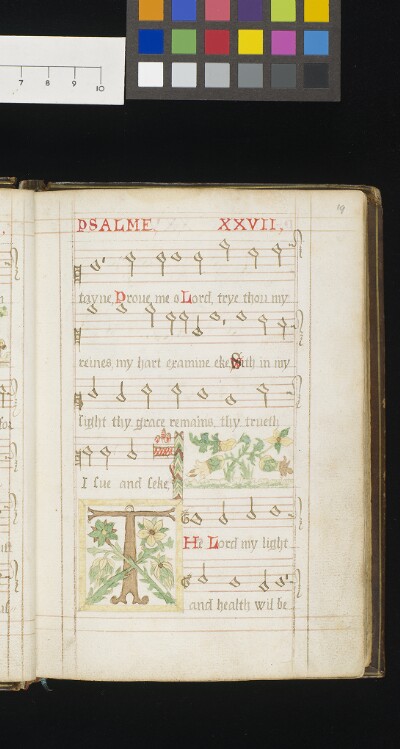 7 8 9 10
19
PSALME. XXVII.
tayne, Proue me o Lord, trye thou my
reines, my hart examine eke, Sith in my
sight thy grace remains, thy trueth
I sue and seke,
T He Lord my light
and health wil be